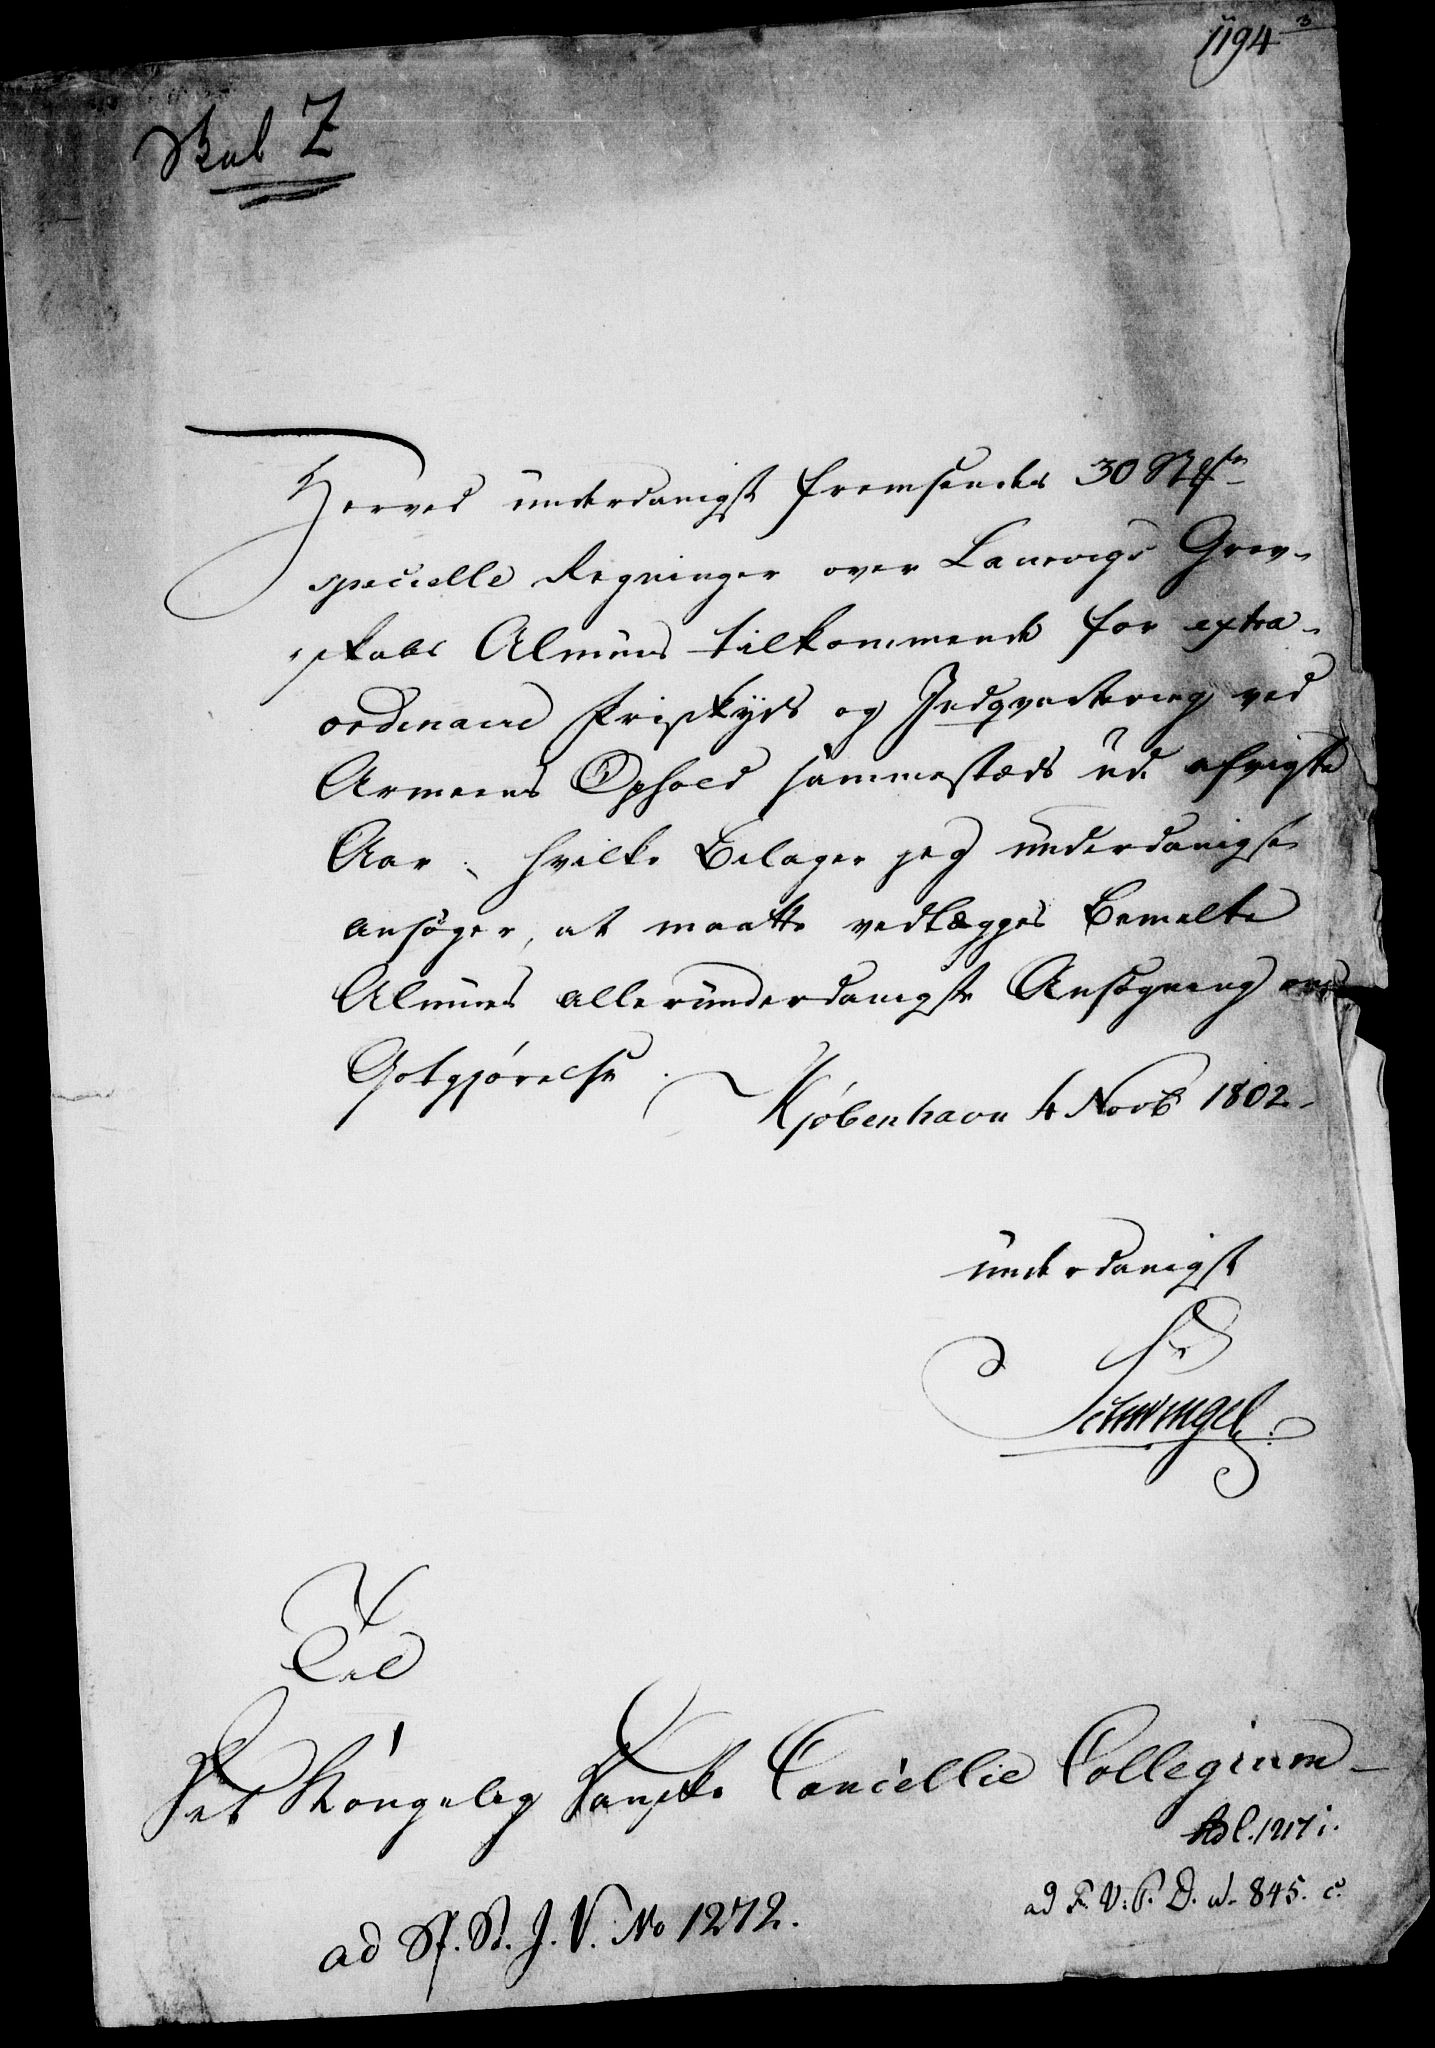 1194
Skab Z
Herved underdanigst fremsendes 30
specielle Regninger over Laurvigs Grev-
skabs Almues tilkommende for extra-
ordinaire Friskyds og Indqvartering ved
Armeens Ophold sammestæds ud. afvigte
Aar, hvilke Bilager jeg underdanigst
ansøger, at maatte vedlægges Bemelte
Almues allerunderdanigste Ansøgning om
Gotgjørelse.
Kjøbenhavn 4 Novb 1802.
underdanigst
Schwingel
Til
Det Kongelig Danske Cancellie Collegium
1217 i.
ad F. V. P. D. 845. c.
ad Sf. St. J. V. No 1272.